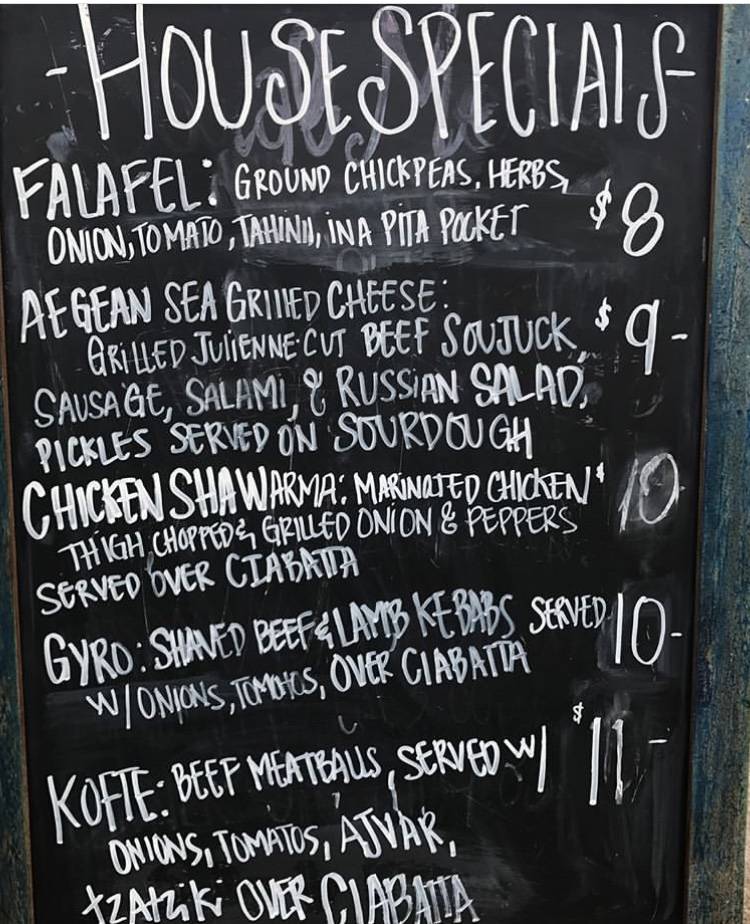 -HOUSE SPECIALS-
FALAFEL: GROUND CHICKPEAS, HERBS, $8
ONION, TOMATO, TAHINI, IN A PITA POCKET
AEGEAN SEA GRILLED CHEESE: $9-
GRILLED JULIENNE CUT BEEF SOUJUCK
SAUSAGE, SALAMI, & RUSSIAN SALAD,
PICKLES SERVED ON SOURDOUGH
CHICKEN SHAWARMA: MARINATED CHICKEN $10
THIGH CHOPPED & GRILLED ONION & PEPPERS
SERVED OVER CIABATTA
GYRO: SHAVED BEEF & LAMB KEBABS SERVED 10-
W/ONIONS, TOMATOS, OVER CIABATTA
KOFTE: BEEF MEATBALLS, SERVED W/ $11-
ONIONS, TOMATOS, AJVAR,
tzatziki OVER CIABATTA